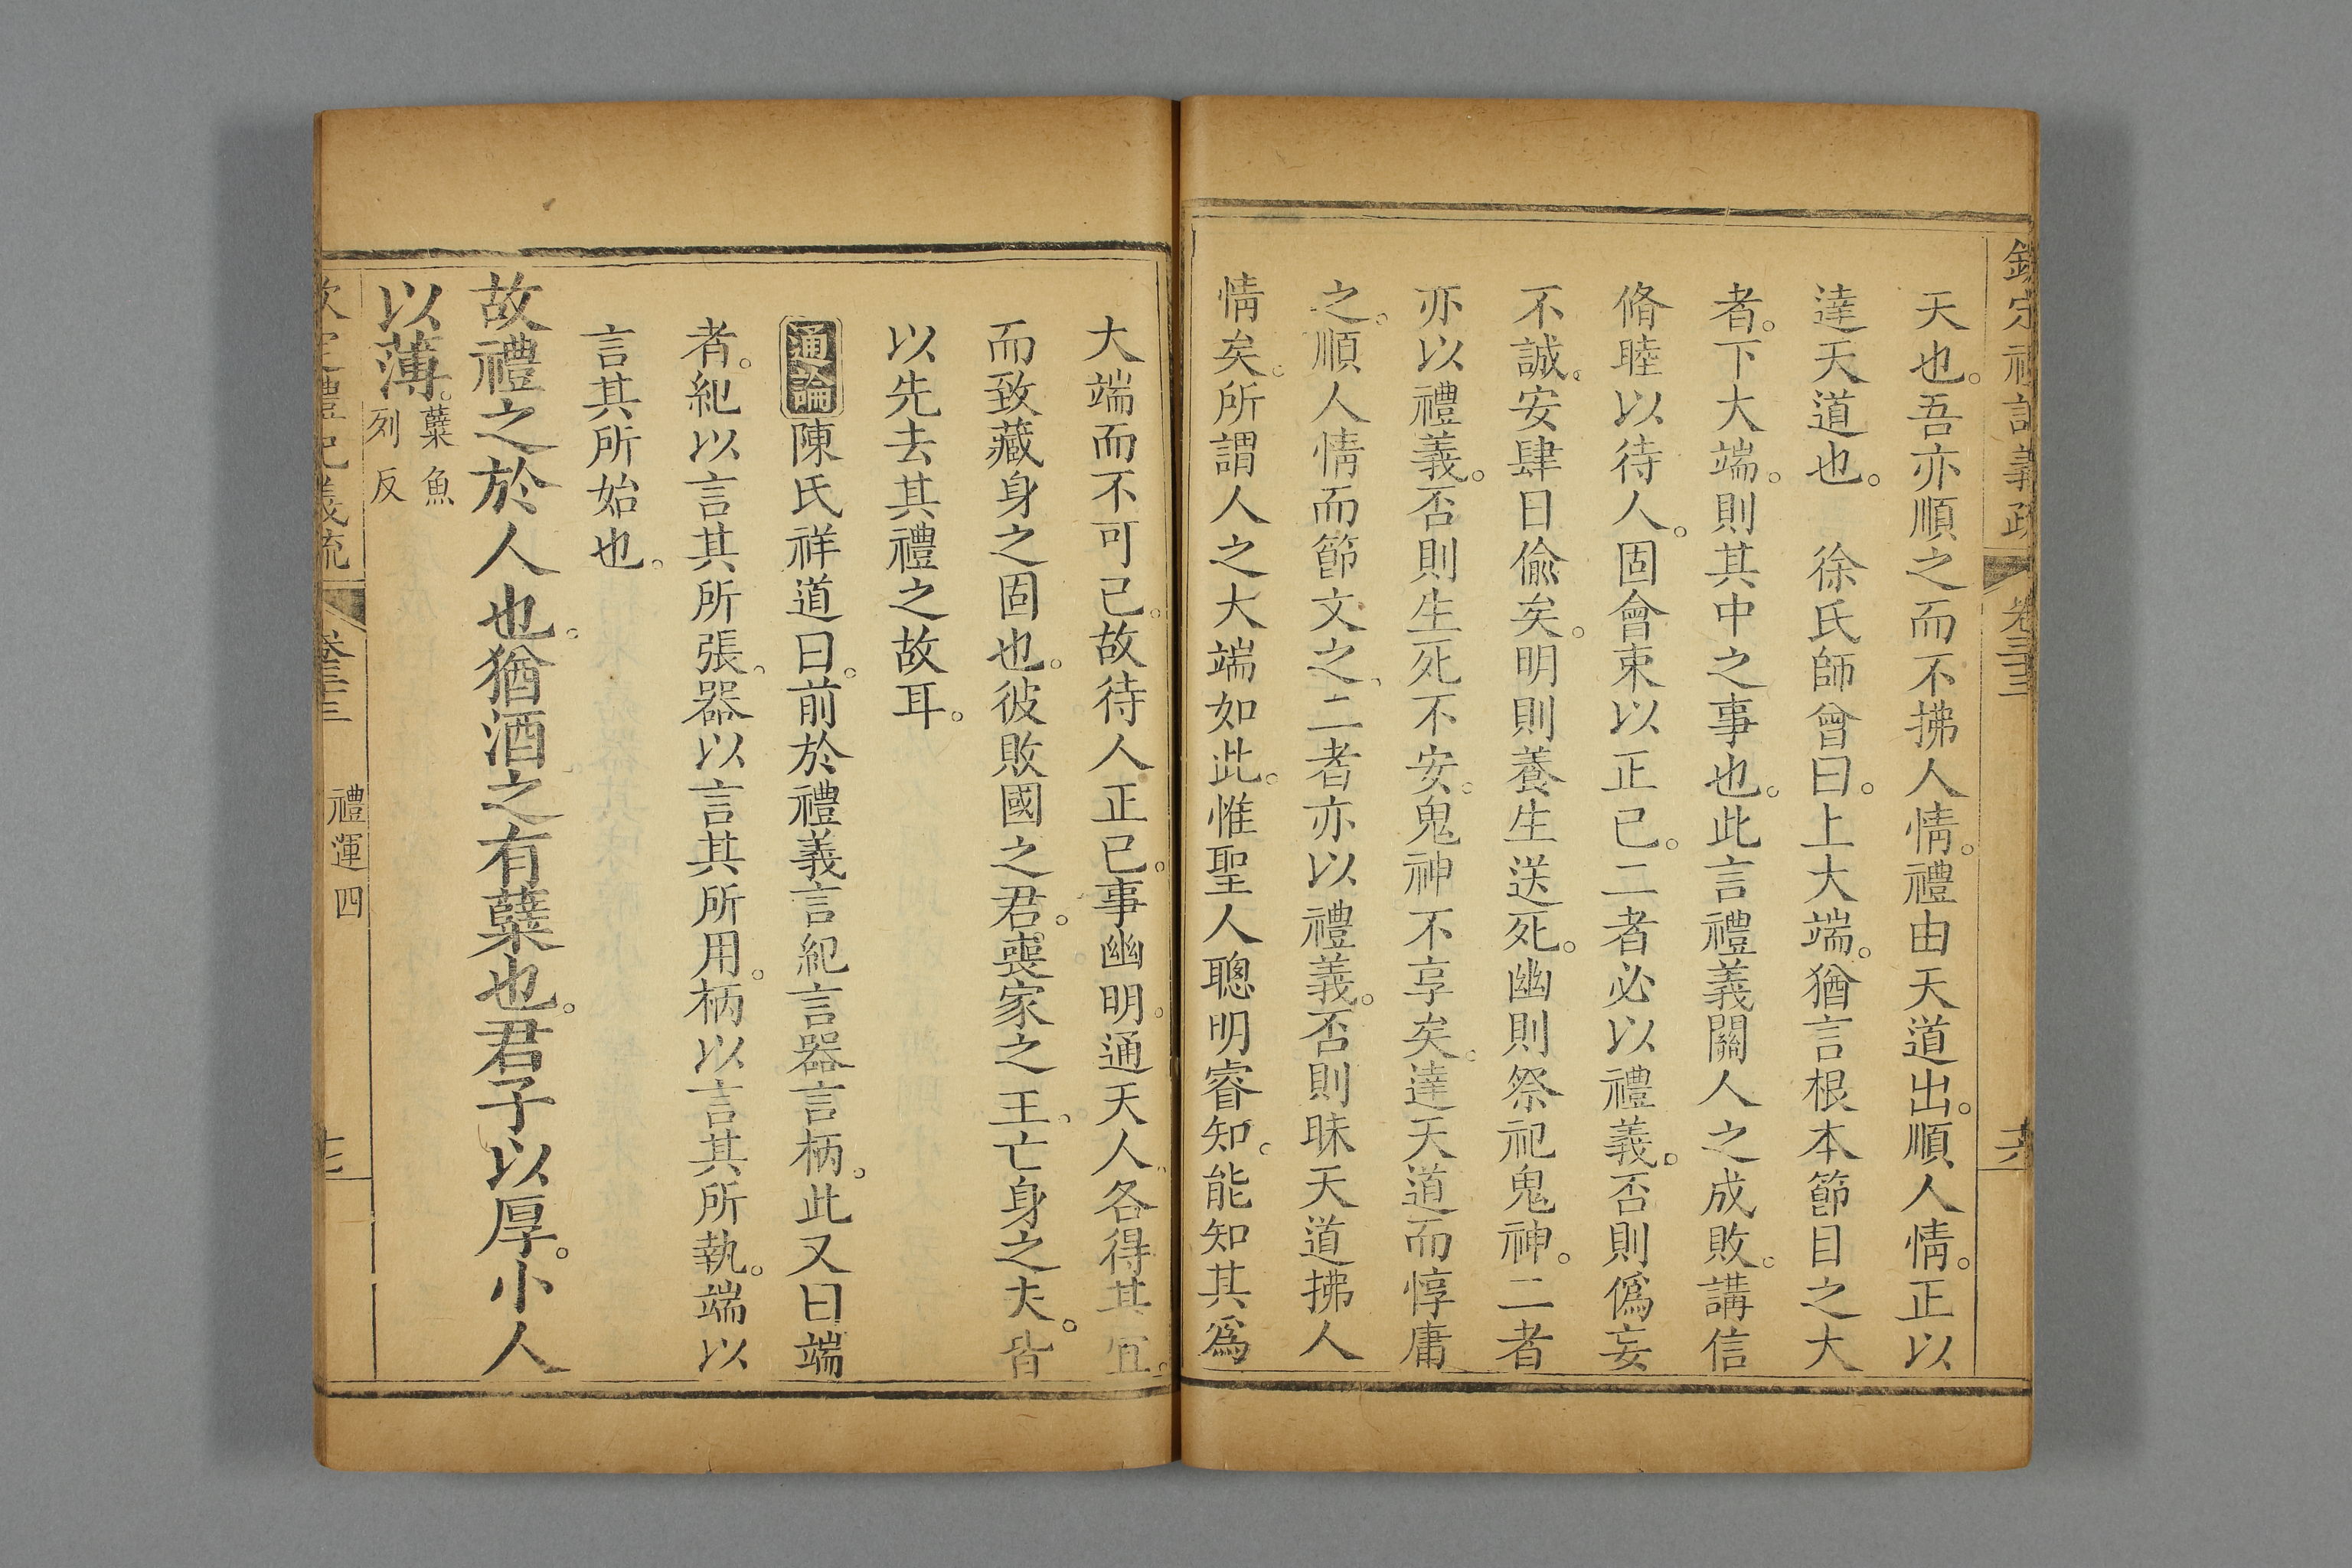 欽定禮記義疏 卷三十三 十六
天也。吾亦順之而不拂人情。禮由天道出。順人情。正以
達天道也。 徐氏師曾曰。上大端。猶言根本節目之大
者。下大端。則其中之事也。此言禮義關人之成敗。講信
脩睦以待人。固會束以正己。二者必以禮義。否則僞妄
不誠。安肆日偸矣。明則養生送死。幽則祭祀鬼神。二者
亦以禮義。否則生死不安。鬼神不享矣。達天道而惇庸
之。順人情而節文之、二者亦以禮義。否則昧天道拂人
情矣。所謂人之大端如此。惟聖人聰明睿知。能知其爲
大端而不可已。故待人正己。事幽明。通天人、各得其宜。
而致藏身之固也。彼敗國之君。喪家之王、亡身之夫。皆
以先去其禮之故耳。
通論 陳氏祥道曰。前於禮義言紀言器言柄。此又曰端
者。紀以言其所張、器以言其所用。柄以言其所執。端以
言其所始也。
故禮之於人也。猶酒之有糱也。君子以厚。小人
以薄。糱魚
列反
欽定禮記義疏 卷三十三 禮運四 十七